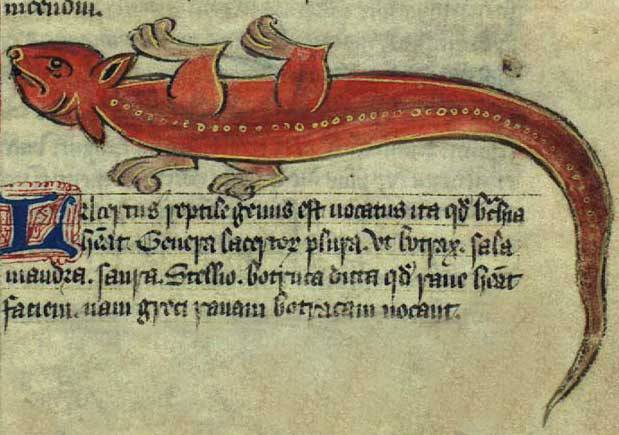 incendiu.
Lacertus reptile genus est uocatus ita qđ bͣchia
hēat. Genera lacertoꝝ plura. vt botrax. sala
mandra. saura. Stellio. botruca dicta qđ rane hēat
faciem. nam greci ranam botracam uocant.